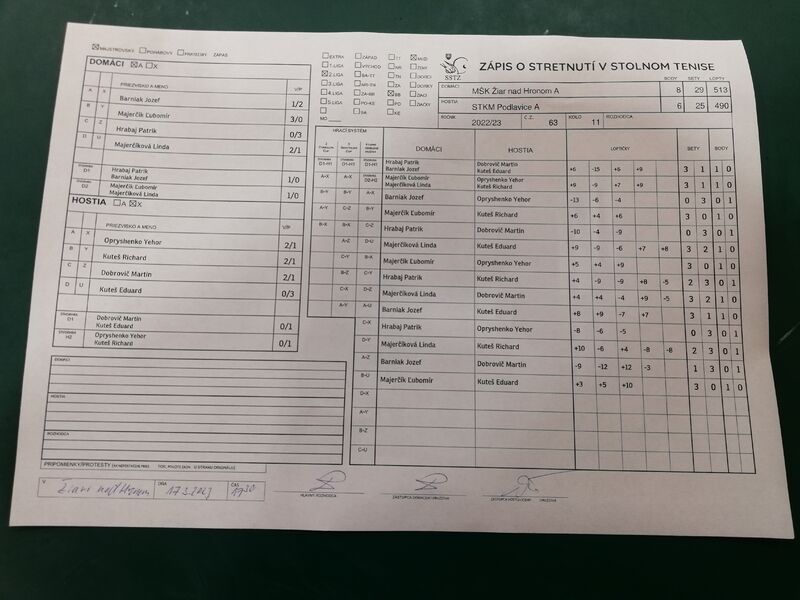 MAJSTROVSKÝ POHÁROVÝ PRIATEĽSKÝ ZÁPAS
DOMÁCI A X
PRIEZVISKO A MENO V/P
A X Barniak Jozef 1/2
B Y Majerčík Ľubomír 3/0
C Z Hrabaj Patrik 0/3
D U Majerčíková Linda 2/1
D1 Hrabaj Patrik
Barniak Jozef 1/0
D2 Majerčík Ľubomír
Majerčíková Linda 1/0
HOSTIA A X
PRIEZVISKO A MENO V/P
A X Opryshenko Yehor 2/1
B Y Kuteš Richard 2/1
C Z Dobrovič Martin 2/1
D U Kuteš Eduard 0/3
D1 Dobrovič Martin
Kuteš Eduard 0/1
H2 Opryshenko Yehor
Kuteš Richard 0/1
DOMÁCI:
HOSTIA:
ROZHODCA:
PRIPOMIENKY/PROTESTY
V Žiari nad Hronom DŇA 17.3.2023 ČAS 19:30
EXTRA ZÁPAD TT MUŽI
1.LIGA VÝCHOD NR ŽENY
2.LIGA BA-TT TN DORCI
3.LIGA NR-TN ZA DORKY
4.LIGA ZA-BB BB ŽIACI
5.LIGA PO-KE PO ŽIAČKY
BA KE
MO
SSTZ
ZÁPIS O STRETNUTÍ V STOLNOM TENISE
BODY SETY LOPTY
DOMÁCI MŠK Žiar nad Hronom A 8 29 513
HOSTIA STKM Podlavice A 6 25 490
ROČNÍK 2022/23 Č.Z. 63 KOLO 11 ROZHODCA
HRACÍ SYSTÉM
DOMÁCI HOSTIA LOPTIČKY SETY BODY
Hrabaj Patrik Dobrovič Martin
Barniak Jozef Kuteš Eduard +6 -15 +6 +9 3 1 1 0
Majerčík Ľubomír Opryshenko Yehor
Majerčíková Linda Kuteš Richard +9 -9 +7 +9 3 1 1 0
A-X Barniak Jozef Opryshenko Yehor -13 -6 -4 0 3 0 1
B-Y Majerčík Ľubomír Kuteš Richard +6 +4 +6 3 0 1 0
C-Z Hrabaj Patrik Dobrovič Martin -10 -4 -9 0 3 0 1
D-U Majerčíková Linda Kuteš Eduard +9 -9 -6 +7 +8 3 2 1 0
B-X Majerčík Ľubomír Opryshenko Yehor +5 +4 +9 3 0 1 0
C-Y Hrabaj Patrik Kuteš Richard +4 -9 -9 +8 -5 2 3 0 1
D-Z Majerčíková Linda Dobrovič Martin +4 +4 -4 +9 -5 3 2 1 0
A-U Barniak Jozef Kuteš Eduard +8 +9 -7 +7 3 1 1 0
C-X Hrabaj Patrik Opryshenko Yehor -8 -6 -5 0 3 0 1
D-Y Majerčíková Linda Kuteš Richard +10 -6 +4 -8 -8 2 3 0 1
A-Z Barniak Jozef Dobrovič Martin -9 -12 +12 -3 1 3 0 1
B-U Majerčík Ľubomír Kuteš Eduard +3 +5 +10 3 0 1 0
D-X
A-Y
B-Z
C-U
HLAVNÝ ROZHODCA ZÁSTUPCA DOMÁCEHO DRUŽSTVA